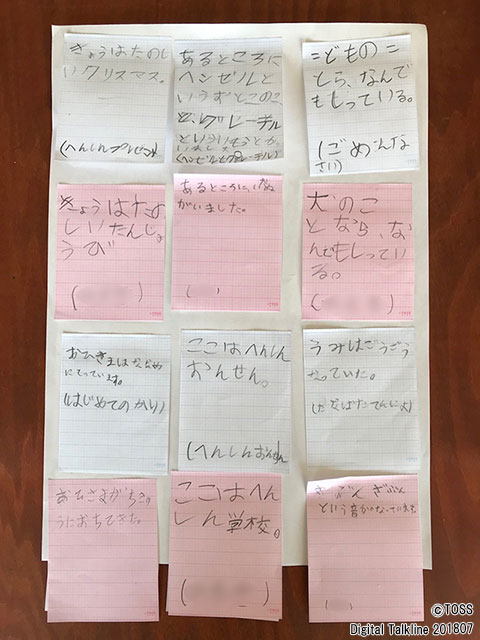 きょうはたのし
いクリスマス。
(へんしんプレゼント)
あるところに
ヘンゼルと
いうおとこのこ
と、グレーテル
といういもうとが
いました。
(ヘンゼルとグレーテル)
こどものこ
とら、なんで
ももっている。
(ごめんな
さい)
きょうはたの
しいたんじょ
うび
(
)
あるところに、いぬ
がいました。
(
)
犬のこ
となら、な
んでもしってい
る。
(
)
おひさまはななめ
にてっています。
(はじめてのかり)
ここはへんしん
おんせん。
(へんしんおんせん
うみはごうごう
なっていた。
(たなばたてんにょ)
おひさまがちきゅ
うにおちてきた。
ここはへん
しん学校。
(
)
ざぶん ざぶん
という音がなっています。
(
)
©TOSS
Digital Talkline 201807